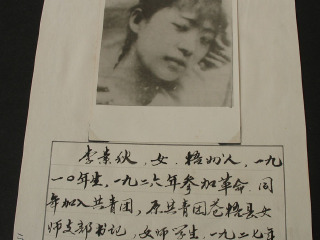 李素伙，女，梧州人，一九
一〇年生，一九二六年参加革命，同
年加入共青团，原共青团苍梧县女
师支部书记，女师学生，一九二七年